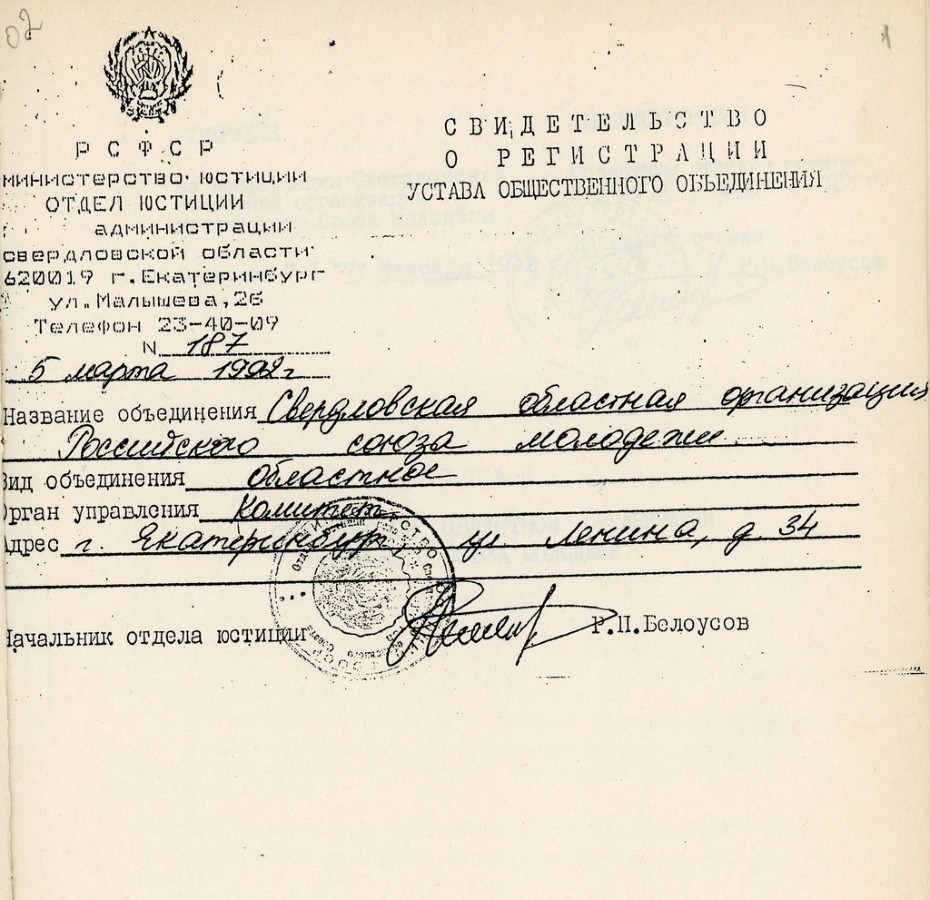 02
1
РСФСР
МИНИСТЕРСТВО ЮСТИЦИИ
ОТДЕЛ ЮСТИЦИИ
администрации
свердловской области
620019 г.Екатеринбург
ул.Малышева,26
Телефон 23-40-09
N 187
5 марта 1992г
СВИДЕТЕЛЬСТВО
О РЕГИСТРАЦИИ
УСТАВА ОБЩЕСТВЕННОГО ОБЪЕДИНЕНИЯ
Название объединения Свердловская областная организация
Российского союза молодежи
Вид объединения областное
Орган управления Комитет
Адрес г. Екатеринбург, ул Ленина, д. 34
Начальник отдела юстиции Р.П.Белоусов